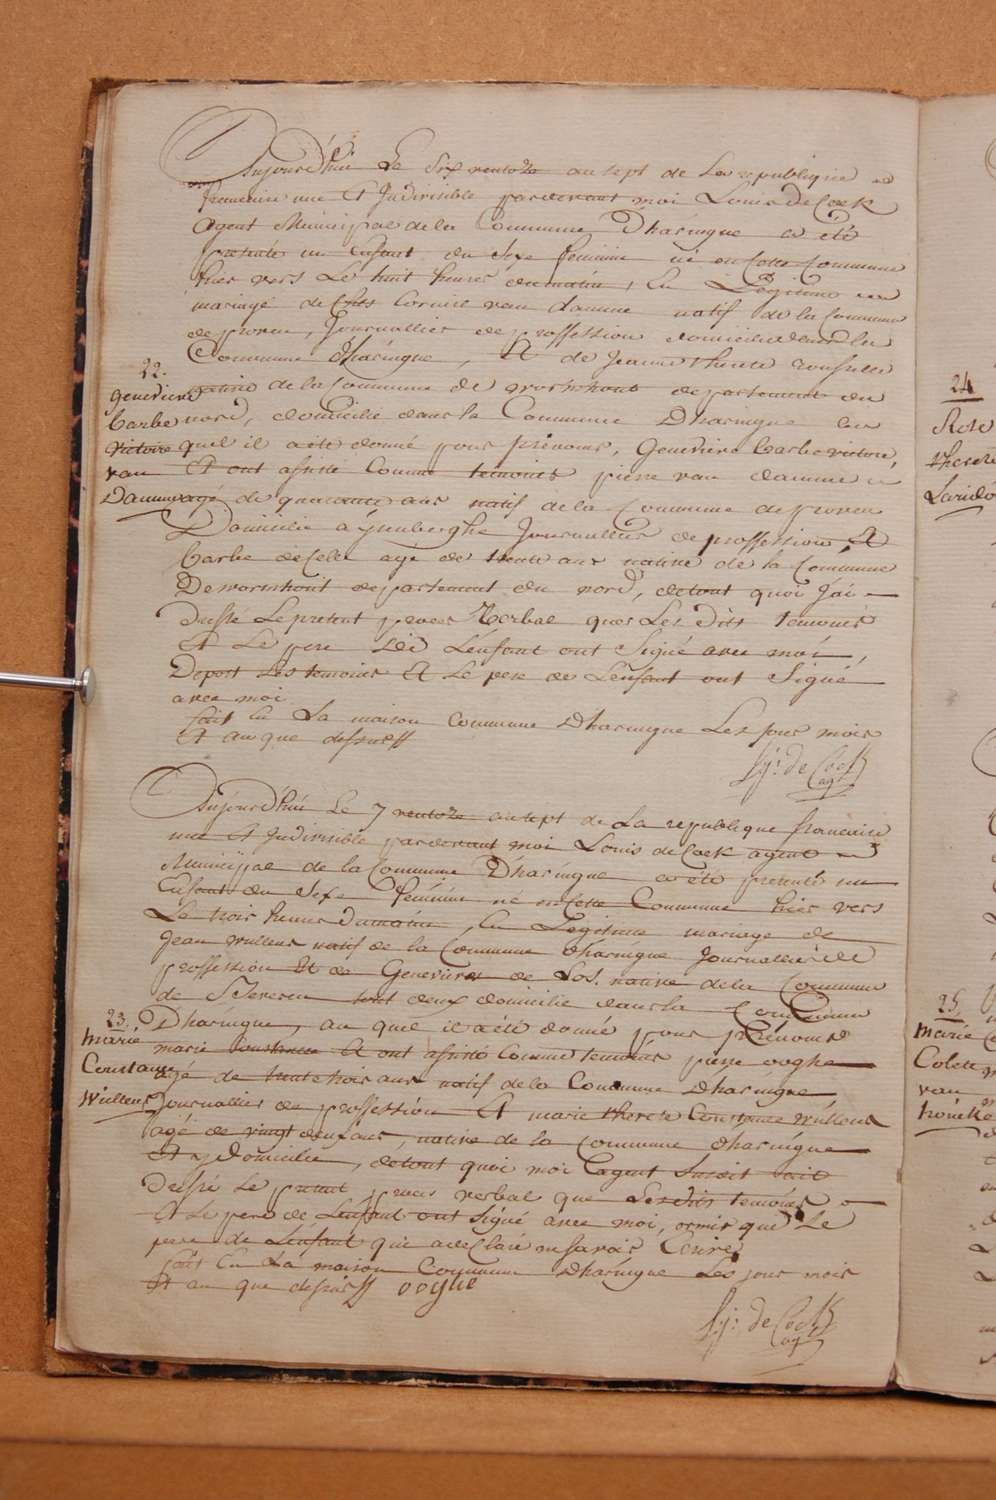 Aujourdhui Le Six ventose an sept de La republique
francaise une Et Indivisible pardevant moi Louis De Cock
agent Municipal de la Commune Dharingue a été
presenté un Enfant du Sexe feminin né en Cette Commune
hier vers Le huit heures du matin, En Légitime
mariage de Corneil van damme natif de la Commune
de proven, Journallier de proffession domicilié dans la
Commune dharingue, Et de Jeanne therese
native de la Commune de wormhout departement du
nord, domicilie dans la Commune Dharingue au
quel il a été donné pour prénoms, Genevieve barbe victoire,
Et ont assisté Comme temoins pierre van damme
agé de quarante ans natif de la Commune de proven
Domicilié a Journallier de proffession, Et
barbe agé de trente ans native de la Commune
De wormhout departement du nord, de tout quoi J'ai
dressé Le present proces Verbal que Les Dits temoins
Et Le pere de L'enfant ont Signé avec moi,
Depost Les temoins Et Le pere de L'enfant ont Signé
avec moi
fait En La maison Commune Dharingue Les jour mois
Et an que dessus
Sy: de Cock
agt
22.
genevieve
barbe
victoire
van
Damme
Aujourdhui Le 7 ventose an sept de La republique francaise
une Et Indivisible pardevant moi Louis de Cock agent
Municipal de la Commune Dharingue a été presenté un
Enfant du Sexe féminin né en Cette Commune hier vers
Le trois heures du matin, En Légitime mariage de
Jean wullens natif de la Commune dharingue Journallier de
proffession Et de Genevieve de Vos. native de la Commune
de tout deux domicilie dans la Commune
Dharingue, au quel il a été donné pour prénoms
marie Constance Et ont assisté Comme temoins pierre ooghe
agé de trente trois ans natif de la Commune dharingue
Journallier de proffession Et marie therese Constance wullens
agé de vingt deux ans, native de la Commune dharingue
Et y domicilie, de tout quoi moi L'agent Susdit ait
Dressé Le present proces verbal que Lesdits temoins
Et Le pere de L'enfant ont Signé avec moi, ormis que Le
pere de L'enfant qui a declaré ne savoir Ecrire
fait En La maison Commune Dharingue Les jour mois
Et an que dessus ooghe
Sy: de Cock
agt
23.
marie
Constance
wullens
24
Rose
therese
25.
marie
Colette
van